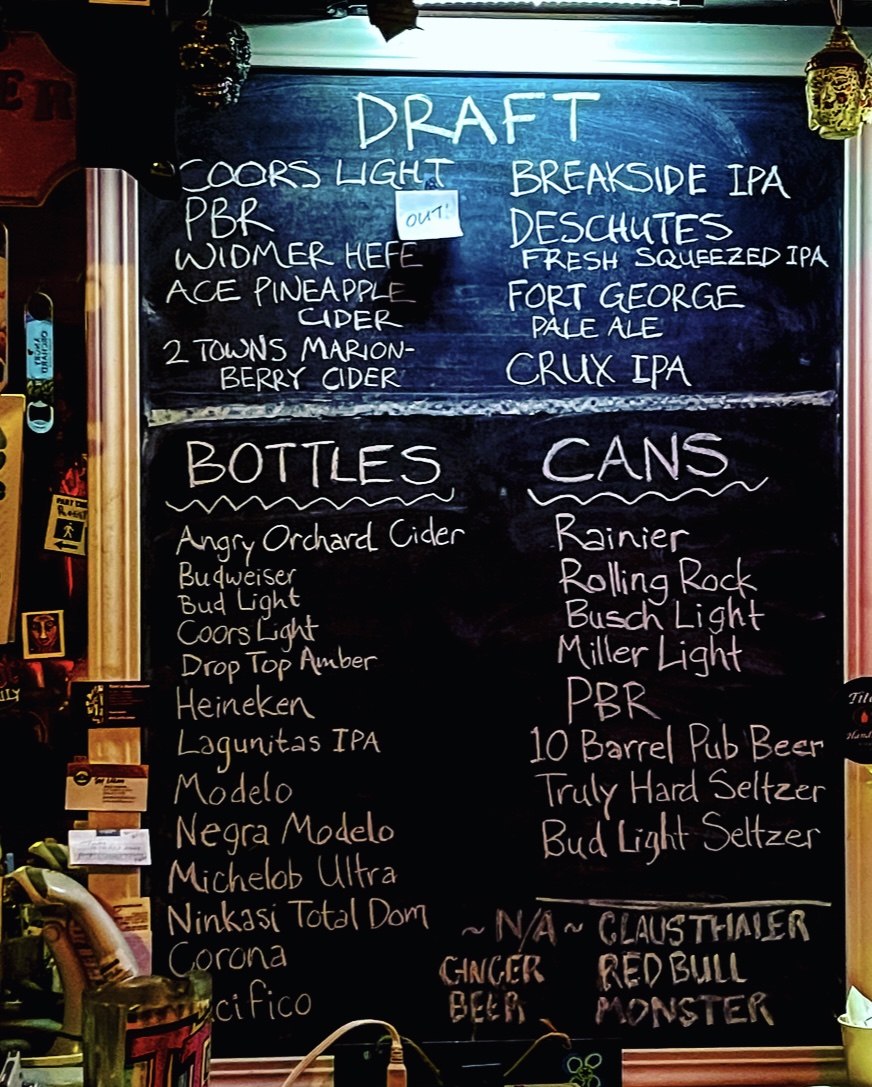 DRAFT
COORS LIGHT
PBR
OUT!
WIDMER HEFE
ACE PINEAPPLE
CIDER
2 TOWNS MARION-
BERRY CIDER
BREAKSIDE IPA
DESCHUTES
FRESH SQUEEZED IPA
FORT GEORGE
PALE ALE
CRUX IPA
BOTTLES
Angry Orchard Cider
Budweiser
Bud Light
Coors Light
Drop Top Amber
Heineken
Lagunitas IPA
Modelo
Negra Modelo
Michelob Ultra
Ninkasi Total Dom
Corona
cifico
CANS
Rainier
Rolling Rock
Busch Light
Miller Light
PBR
10 Barrel Pub Beer
Truly Hard Seltzer
Bud Light Seltzer
~ N/A ~
GINGER
BEER
CLAUSTHALER
RED BULL
MONSTER
ER
ANGRY
ORCHARD